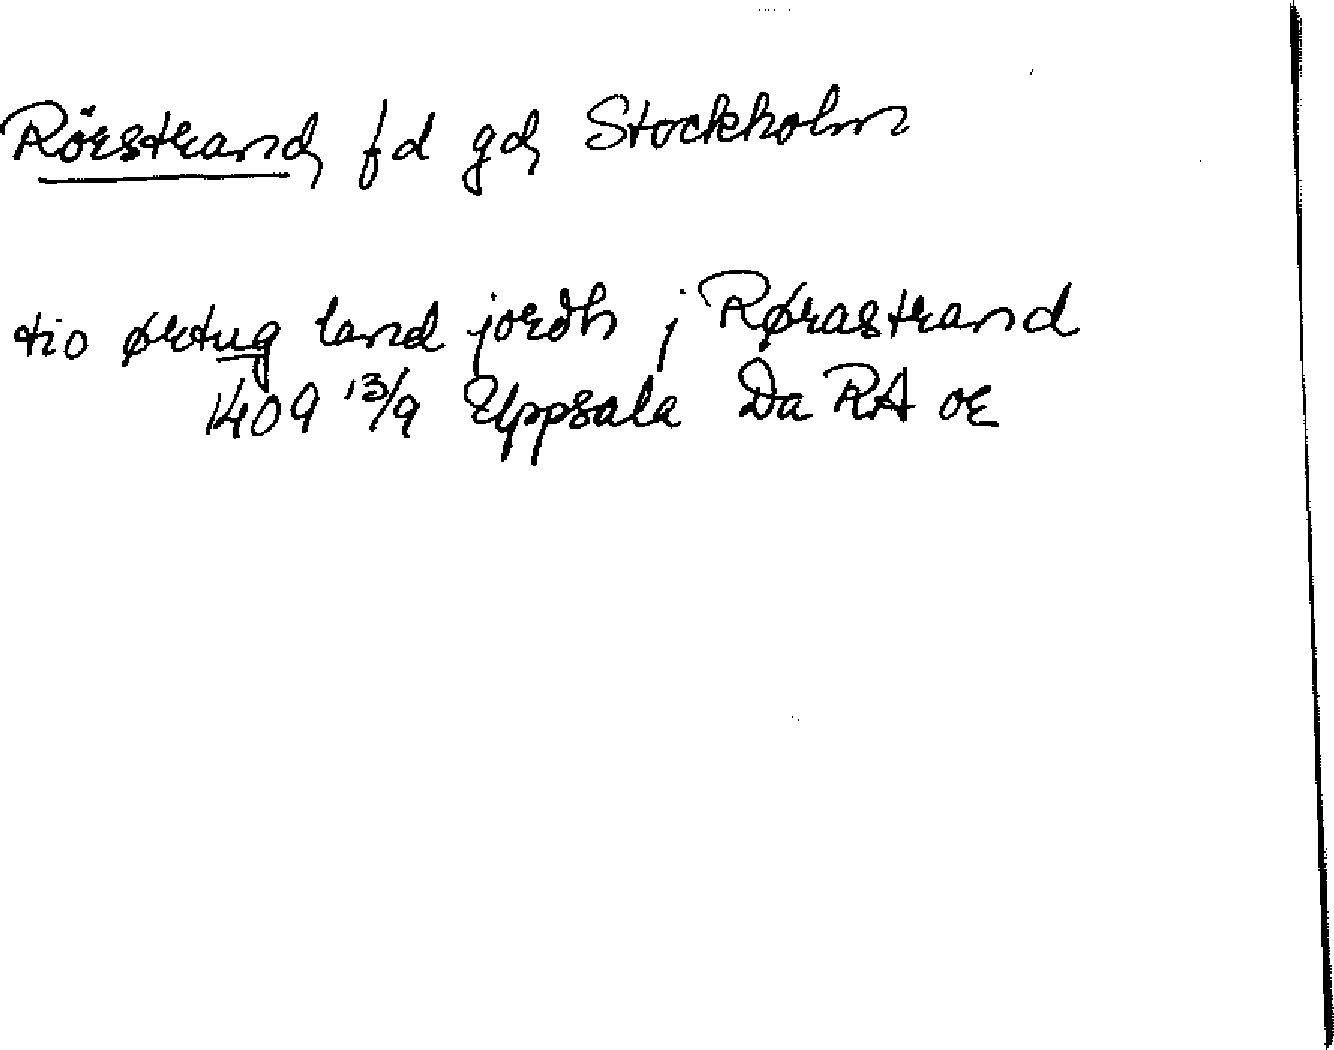 Rörstrand, fd gd, Stockholm
tio ørtug land jordh j Rørastrand
1409 13/9 Uppsala Da RA or